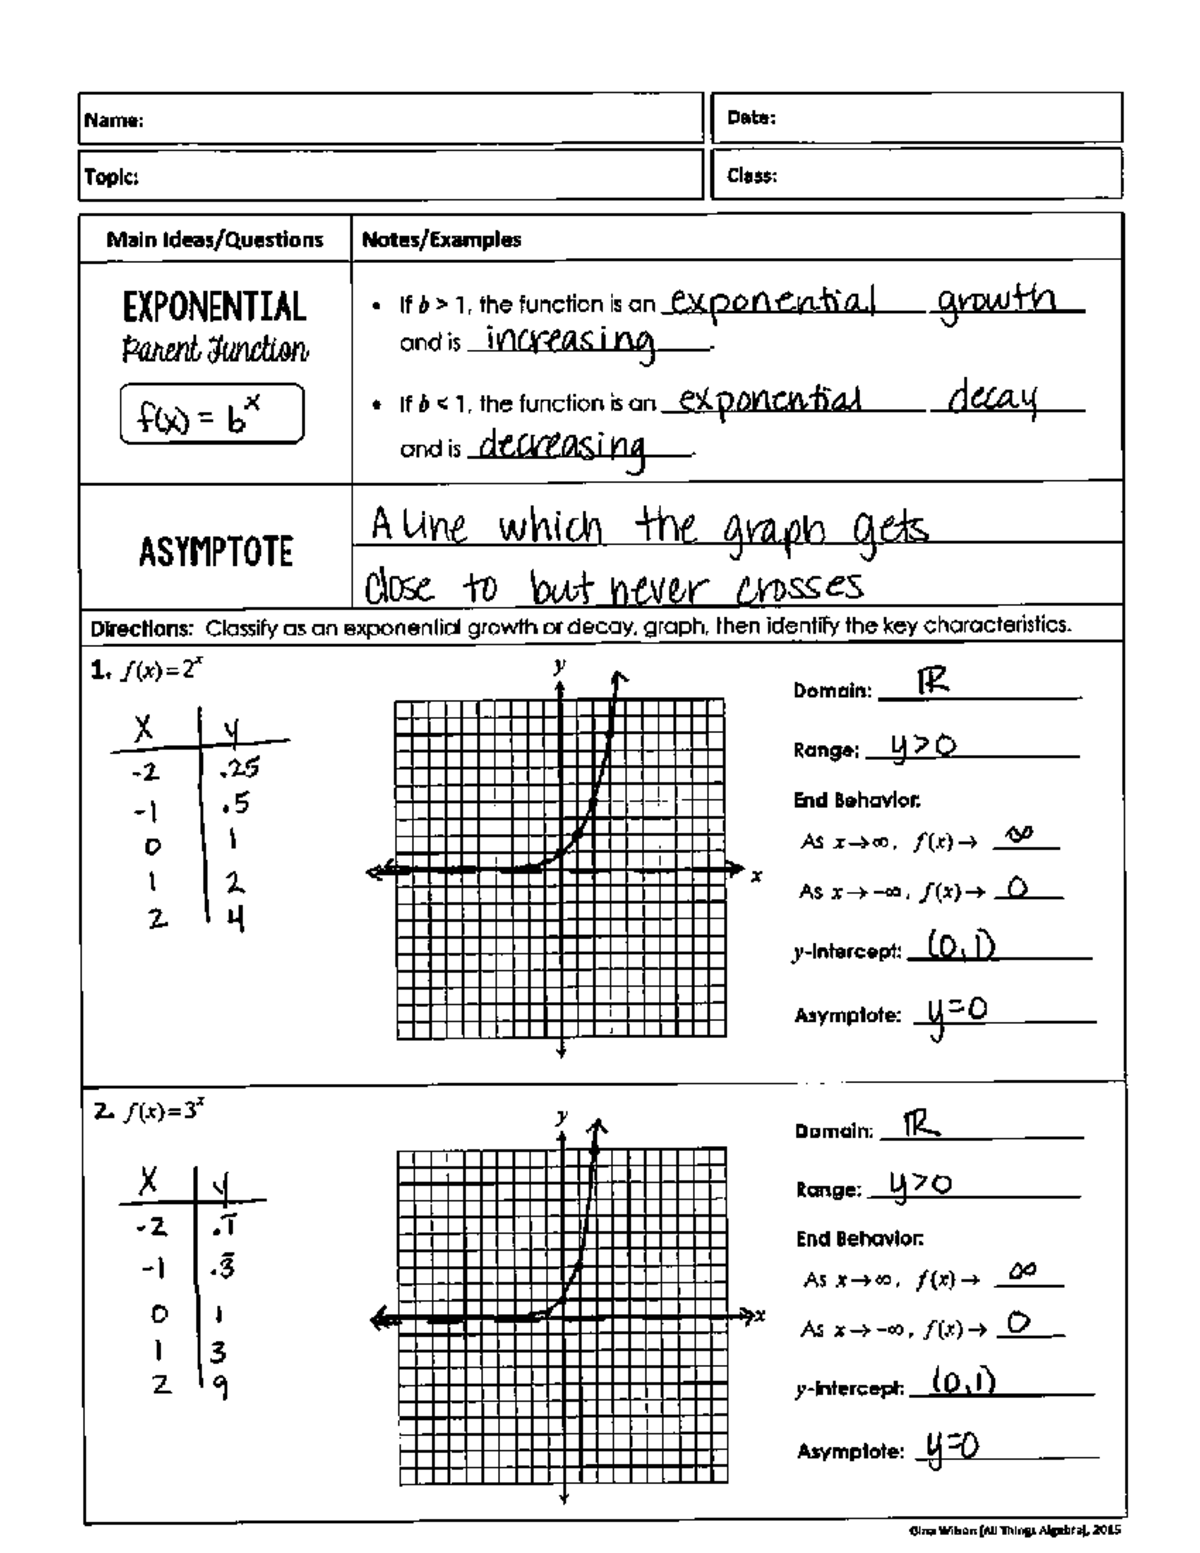 Name:
Date:
Topic:
Class:
Main Ideas/Questions
Notes/Examples
EXPONENTIAL
Parent Function
f(x) = b^x
• If b > 1, the function is an exponential growth
and is increasing.
• If b < 1, the function is an exponential decay
and is decreasing.
ASYMPTOTE
A line which the graph gets
close to but never crosses
Directions: Classify as an exponential growth or decay, graph, then identify the key characteristics.
1. f(x)=2^x
x y
-2 .25
-1 .5
0 1
1 2
2 4
y
x
Domain: ℝ
Range: y>0
End Behavior:
As x→∞, f(x)→ ∞
As x→-∞, f(x)→ 0
y-intercept: (0,1)
Asymptote: y=0
2. f(x)=3^x
x y
-2 .1̅
-1 .3̅
0 1
1 3
2 9
y
x
Domain: ℝ
Range: y>0
End Behavior:
As x→∞, f(x)→ ∞
As x→-∞, f(x)→ 0
y-intercept: (0,1)
Asymptote: y=0
Gina Wilson (All Things Algebra), 2015